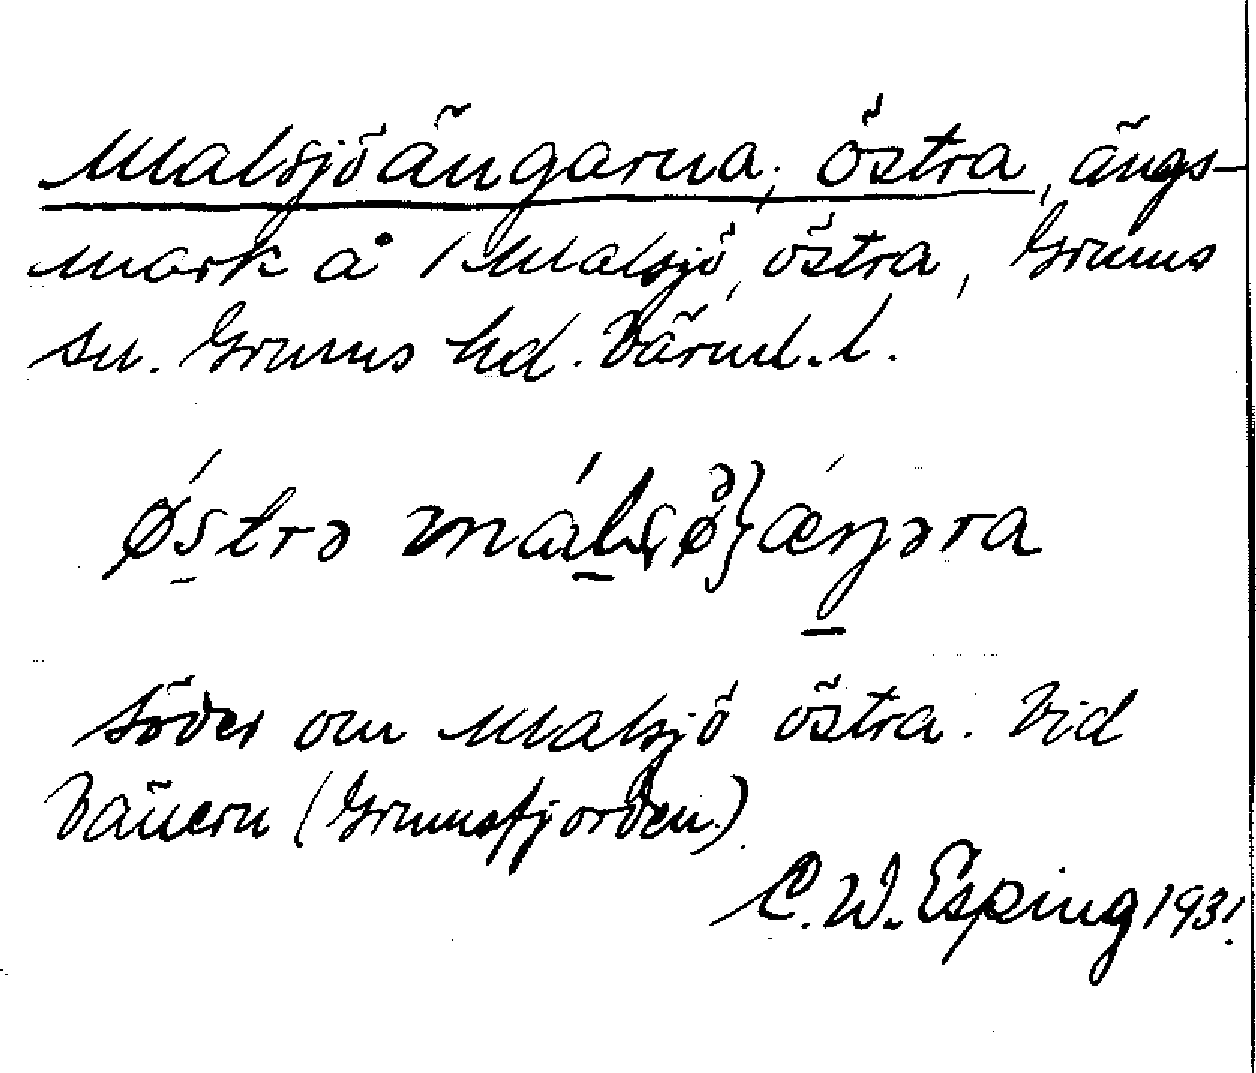 Malsjöängarna, östra, ängs-
mark å 1 Malsjö, östra, Grums
sn. Grums hd. Värml. l.
ǿstrə málsø̀}æŋəra
Söder om Malsjö östra. Vid
Vänern (Grumsfjorden)
C. W. Esping 1931.